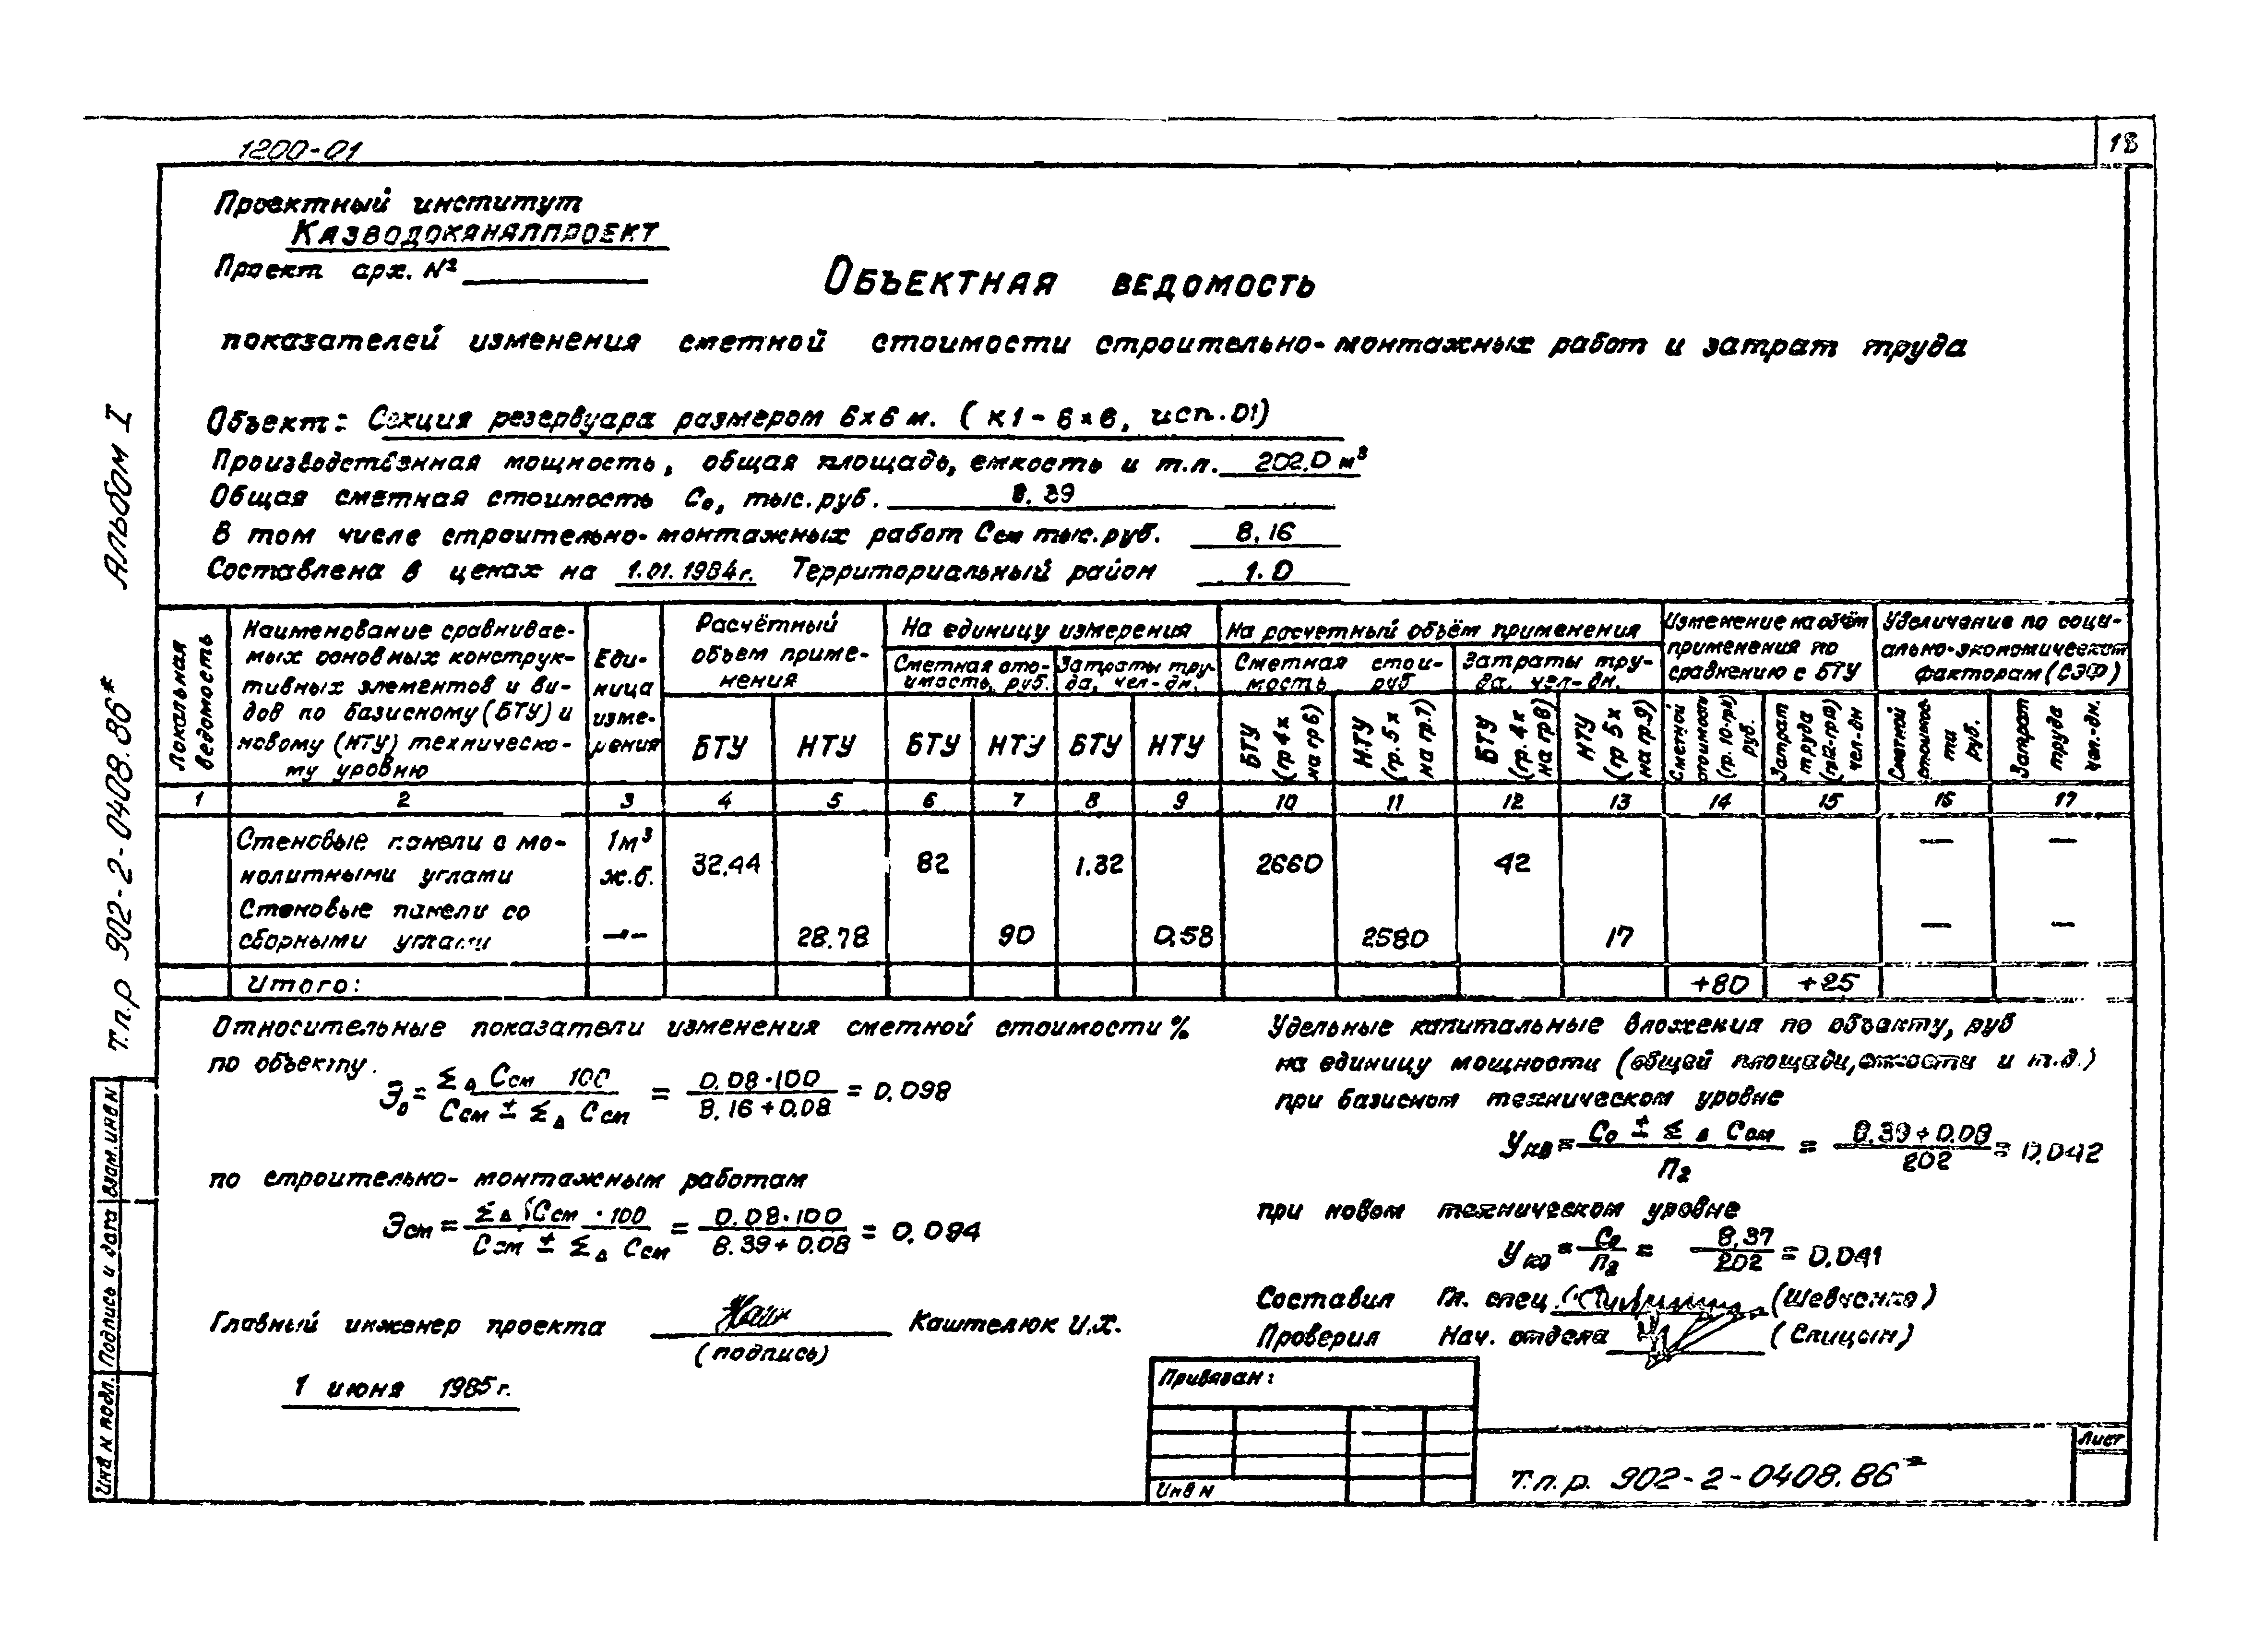 1200-01
18
Проектный институт
КАЗВОДОКАНАЛПРОЕКТ
Проект арх. №
ОБЪЕКТНАЯ ВЕДОМОСТЬ
показателей изменения сметной стоимости строительно-монтажных работ и затрат труда
Объект: Секция резервуара размером 6×6 м. (К1-6×6, исп.01)
Производственная мощность, общая площадь, емкость и т.п. 202.0 м³
Общая сметная стоимость Со, тыс.руб. 8.39
В том числе строительно-монтажных работ Ссм тыс.руб. 8.16
Составлена в ценах на 1.01.1984г. Территориальный район 1.0
Локальная ведомость
Наименование сравнивае-
мых основных конструк-
тивных элементов и ви-
дов по базисному (БТУ) и
новому (НТУ) техническо-
му уровню
Еди-
ница
изме-
рения
Расчётный
объем приме-
нения
На единицу измерения
Сметная сто-
имость, руб.
Затраты тру-
да, чел-дн.
На расчетный объём применения
Сметная стои-
мость руб
Затраты тру-
да, чел-дн.
Изменение на объём
применения по
сравнению с БТУ
Увеличение по соци-
ально-экономическим
факторам (СЭФ)
БТУ НТУ БТУ НТУ БТУ НТУ
БТУ (гр 4х на гр 6)
НТУ (гр. 5х на гр.7)
БТУ (гр. 4х на гр8)
НТУ (гр 5х на гр.9)
Сметной стоимости (гр. 10-гр11) руб.
Затрат труда (гр12-гр13) чел-дн
Сметной стоимос та руб.
Затрат труда чел.-дн.
1 2 3 4 5 6 7 8 9 10 11 12 13 14 15 16 17
Стеновые панели с мо- 1м³ — —
нолитными углами ж.б. 32.44 82 1.32 2660 42
Стеновые панели со
сборными углами —"— 28.78 90 0.58 2580 17 — —
Итого: +80 +25
Относительные показатели изменения сметной стоимости %
по объекту.
Эо = Σ∆ Ссм 100 / Ссм ± Σ∆ Ссм = 0.08·100 / 8.16+0.08 = 0.098
по строительно-монтажным работам
Эсм = Σ∆ Ссм · 100 / Ссм ± Σ∆ Ссм = 0.08·100 / 8.39+0.08 = 0.094
Главный инженер проекта Каштелюк И.Х.
(подпись)
1 июня 1985г.
Удельные капитальные вложения по объекту, руб
на единицу мощности (общей площади, емкости и т.д.)
при базисном техническом уровне
Укв = Со ± Σ∆ Ссм / П2 = 8.39+0.08 / 202 = 0.042
при новом техническом уровне
Уко = Со / П2 = 8.37 / 202 = 0.041
Составил Гл. спец. (Шевченко)
Проверил Нач. отдела (Спицын)
Привязан:
Инв N
Т.п.р. 902-2-0408.86
Лист
Альбом I
Т.п.р 902-2-0408.86*
Взам.инв N
Подпись и дата
Инв N подл.